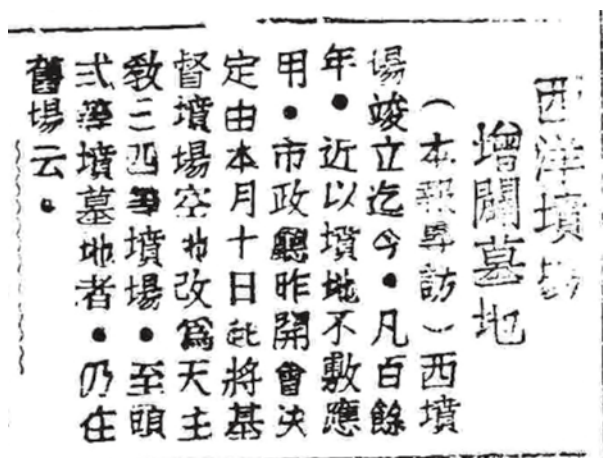 西洋墳場
增闢墓地
（本報專訪）西墳
場竣立迄今・凡百餘
年・近以墳地不敷應
用・市政廳昨開會決
定由本月十日起將基
督墳場空地改爲天主
敎三四等墳場・至頭
弍等墳墓地者・仍在
舊場云・